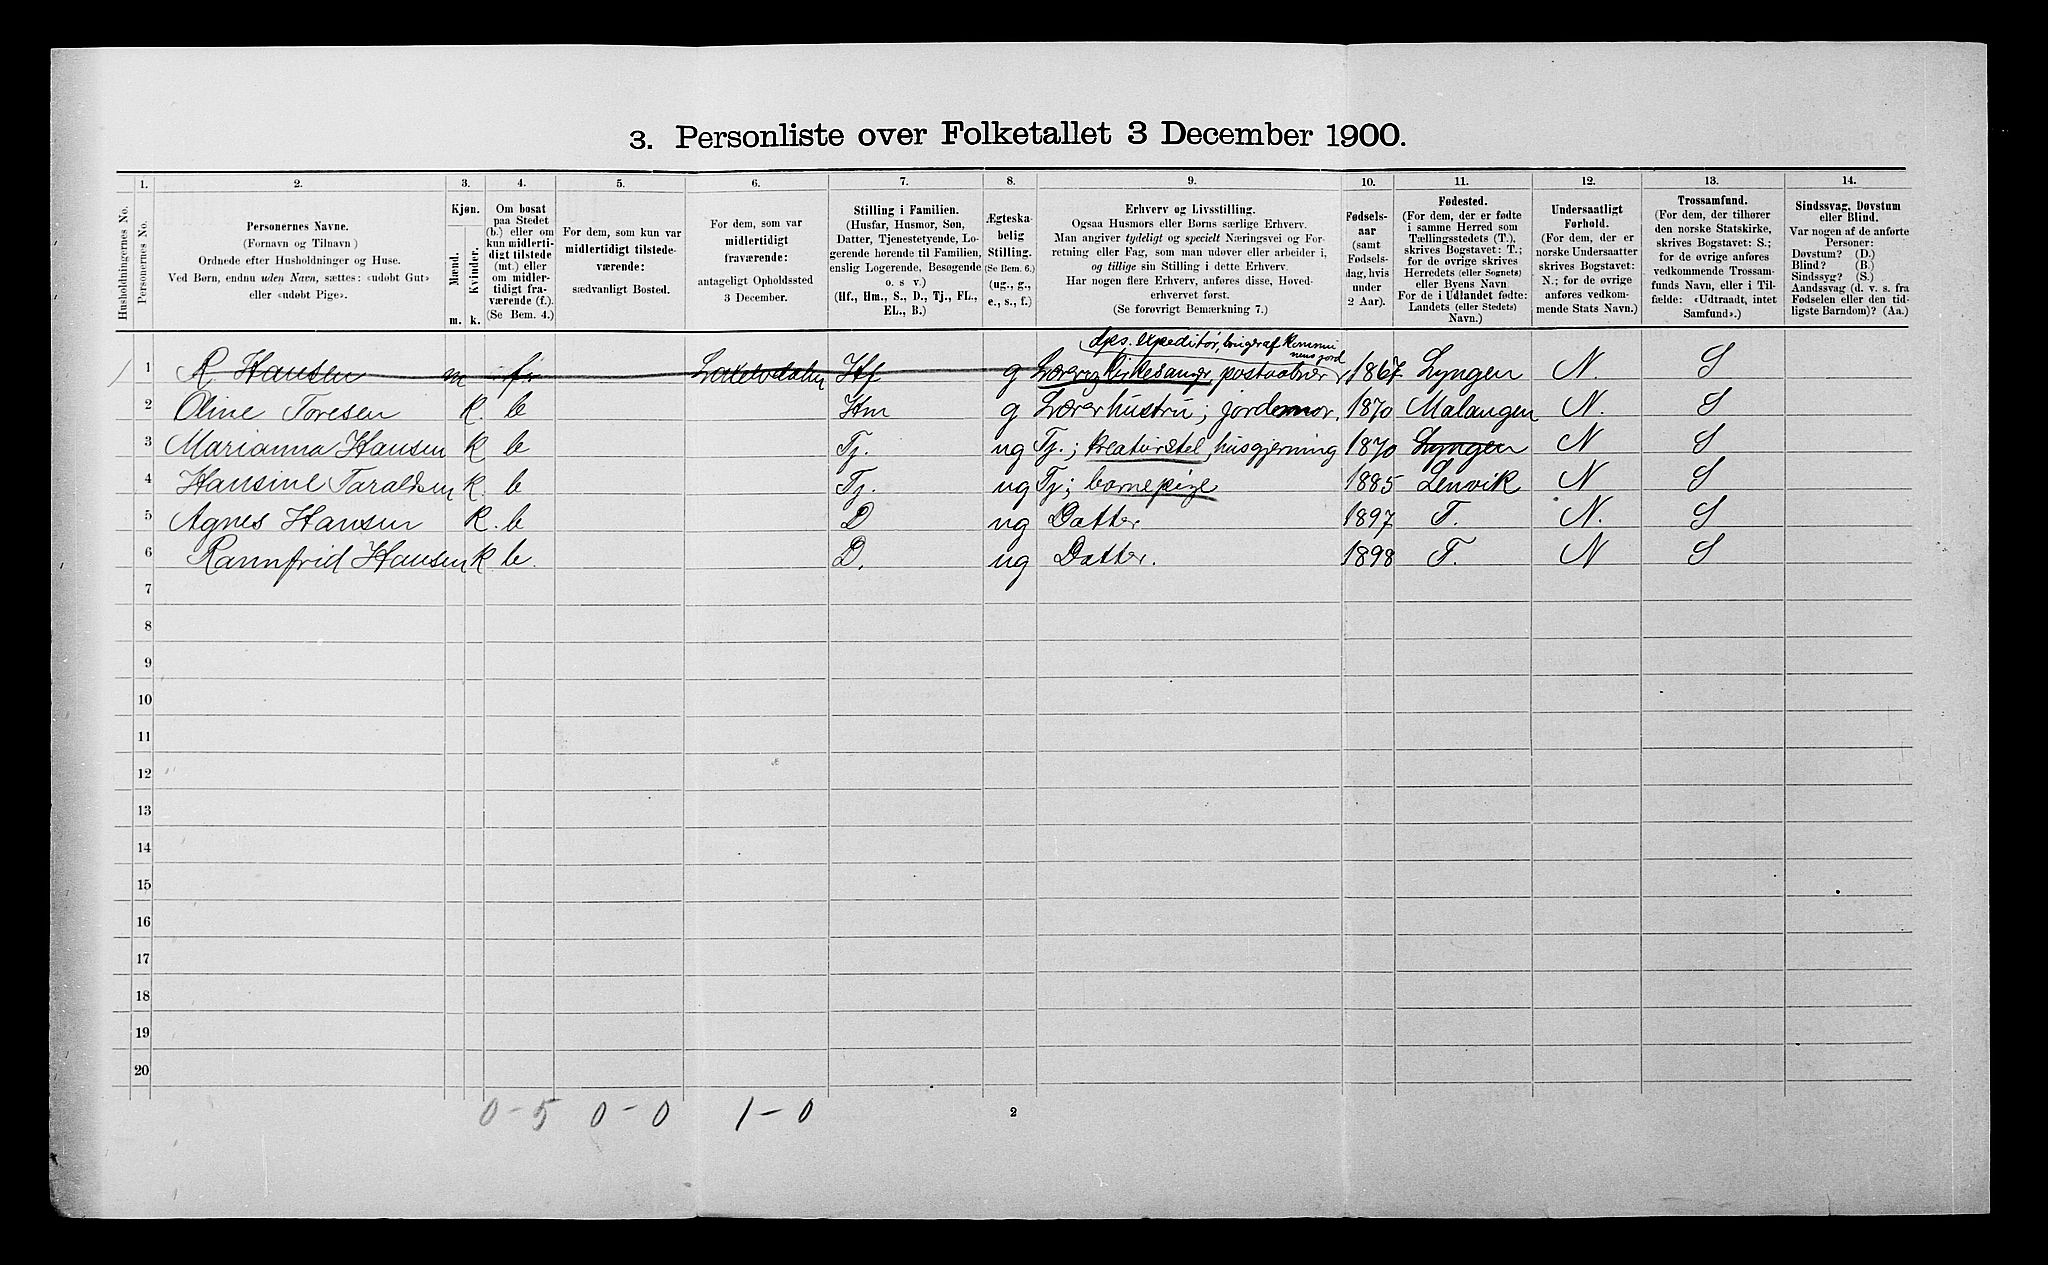 3. Personliste over Folketallet 3 December 1900.
1. 2. 3. 4. 5. 6. 7. 8. 9. 10. 11. 12. 13. 14.
Husholdningernes No.
Personernes No.
Personernes Navne.
(Fornavn og Tilnavn)
Ordnede efter Husholdninger og Huse.
Ved Børn, endnu uden Navn, sættes: «udøbt Gut»
eller «udøbt Pige».
Kjøn.
Mænd.
Kvinder.
m. k.
Om bosat
paa Stedet
(b.) eller om
kun midlerti-
digt tilstede
(mt.) eller
om midler-
tidigt fra-
værende (f.).
(Se Bem. 4.)
For dem, som kun var
midlertidigt tilstede-
værende:
sædvanligt Bosted.
For dem, som var
midlertidigt
fraværende:
antageligt Opholdssted
3 December.
Stilling i Familien.
(Husfar, Husmor, Søn,
Datter, Tjenestetyende, Lo-
gerende hørende til Familien,
enslig Logerende, Besøgende
o. s v.)
(Hf., Hm., S., D., Tj., FL.,
EL., B.)
Ægteska-
belig
Stilling.
(Se Bem. 6.)
(ug., g.,
e., s., f.)
Erhverv og Livsstilling.
Ogsaa Husmors eller Børns særlige Erhverv.
Man angiver tydeligt og specielt Næringsvei og For-
retning eller Fag, som man udøver eller arbeider i,
og tillige sin Stilling i dette Erhverv.
Har nogen flere Erhverv, anføres disse, Hoved-
erhvervet først.
(Se forøvrigt Bemærkning 7.)
Fødsels-
aar
(samt
Fødsels-
dag, hvis
under
2 Aar).
Fødested.
(For dem, der er fødte
i samme Herred som
Tællingsstedets (T.),
skrives Bogstavet: T.;
for de øvrige skrives
Herredets (eller Sognets)
eller Byens Navn
For de i Udlandet fødte:
Landets (eller Stedets)
Navn.)
Undersaatligt
Forhold.
(For dem, der er
norske Undersaatter
skrives Bogstavet:
N.; for de øvrige
anføres vedkom-
mende Stats Navn.)
Trossamfund.
(For dem, der tilhører
den norske Statskirke,
skrives Bogstavet: S.;
for de øvrige anføres
vedkommende Trossam-
funds Navn, eller i Til-
fælde: «Udtraadt, intet
Samfund».)
Sindssvag, Døvstum
eller Blind.
Var nogen af de anførte
Personer:
Døvstum? (D.)
Blind? (B.)
Sindssyg? (S.)
Aandssvag (d. v. s. fra
Fødselen eller den tid-
ligste Barndom)? (Aa.)
dps. expeditør, 
1 R. Hansen m f Hf g Lærer, kirkesanger, postaabner 1867 Lyngen N. S
2 Oline Toresen K. b Hm g Lærerhustru; jordemor. 1870 Malangen N. S
3 Marianna Hansen K b Tj. ug Tj.; kreaturstel, husgjerning 1870 Lyngen N S
4 Hansine Taraldsen K. b Tj. ug Tj; barnepige 1885 Lenvik N S
5 Agnes Hansen K. b D ug Datter 1897 T. N. S
6 Rannfrid Hansen K b. D. ug Datter. 1898 T. N S
7
8
9
10
11
12
13
14
15
16
17
18
19
20
0-5 0-0 1-0 2